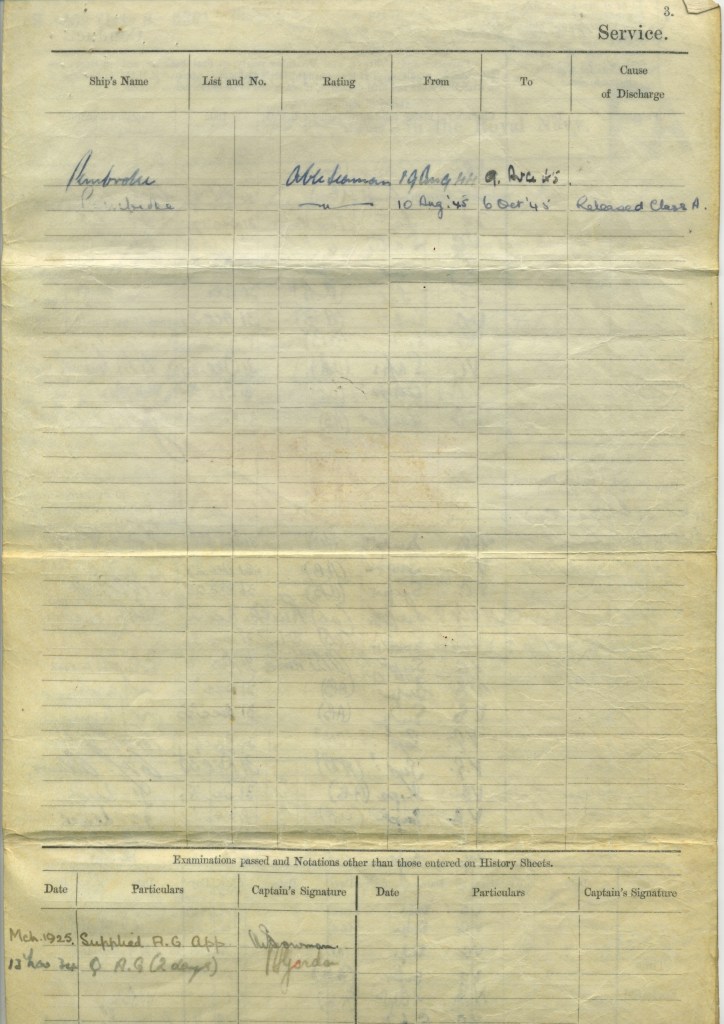 3.
Service.
Ship's Name List and No. Rating From To Cause of Discharge
Pembroke Able Seaman 19 Aug 44 9. Aug 45.
Pembroke 10 Aug '45 6 Oct '45 Released Class A.
Examinations passed and Notations other than those entered on History Sheets.
Date Particulars Captain's Signature Date Particulars Captain's Signature
Mch. 1925. Supplied A.G. App.
13 Q A.G (2 days)